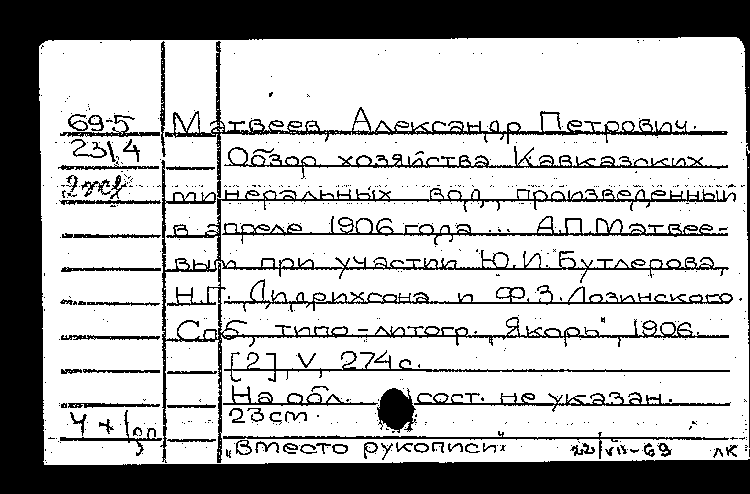 69-5 Матвеев, Александр Петрович.
23/4 Обзор хозяйства Кавказских
минеральных вод, произведенный
в апреле 1906 года ... А.П.Матвее-
вым при участии Ю.И.Бутлерова,
Н.Г. Дидрихсона и Ф.З.Лозинского.
Спб., типо-литогр. „Якорь", 1906.
[2], V, 274 с.
На обл. сост. не указан.
23 см.
„Вместо рукописи" 22/VII-69 ЛК